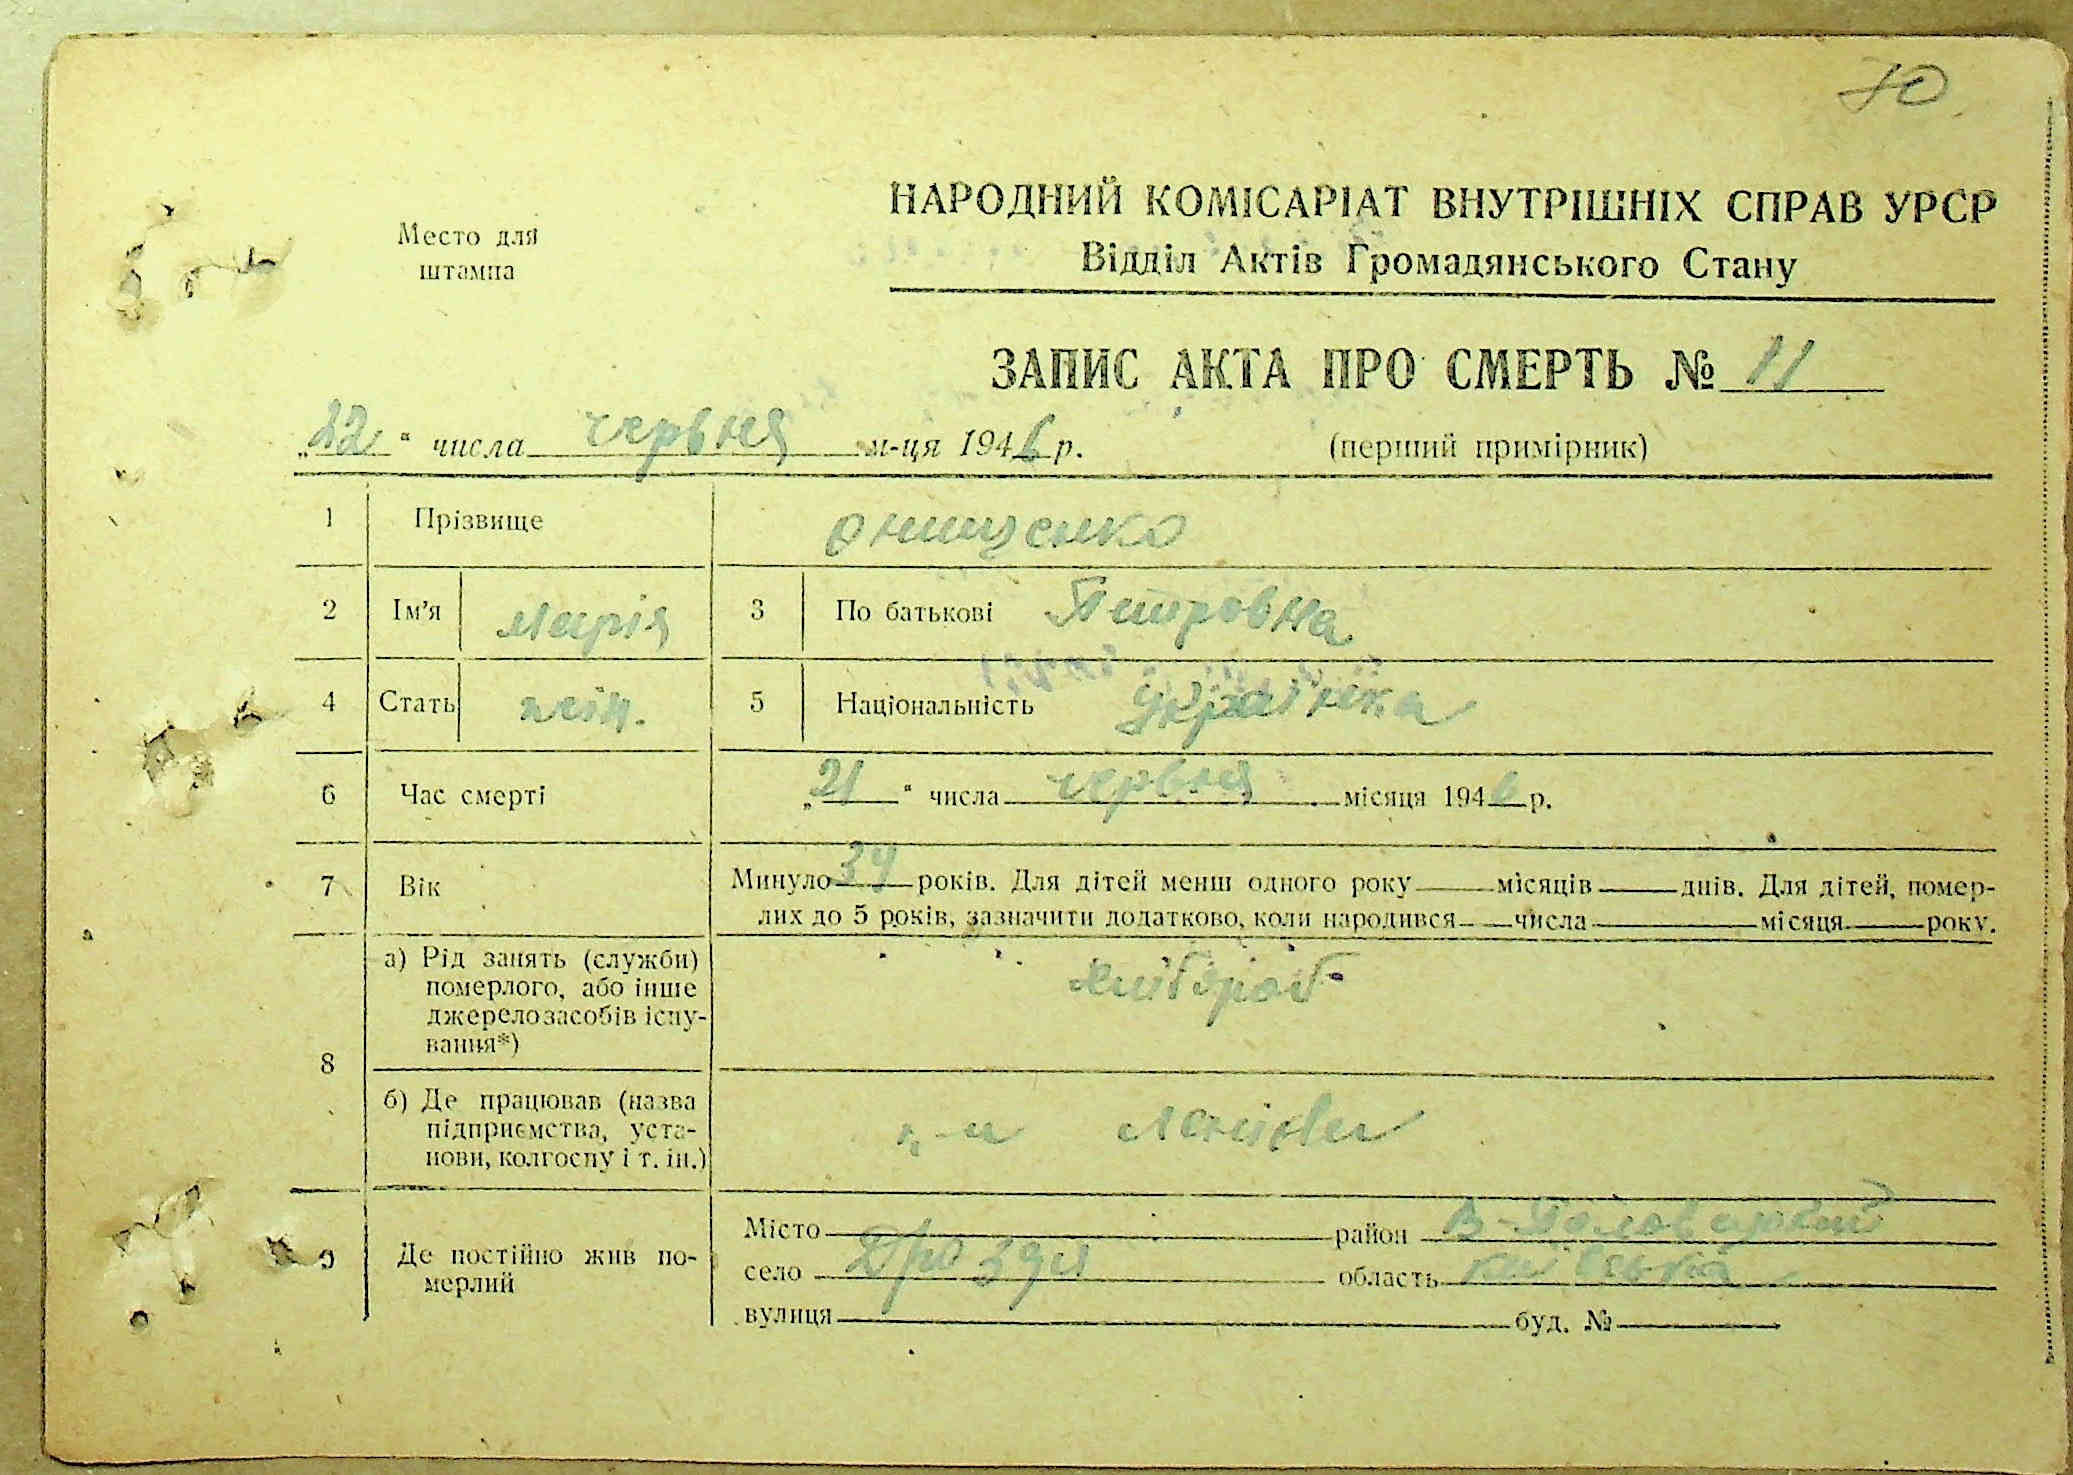 70
Место для
штампа
НАРОДНИЙ КОМІСАРІАТ ВНУТРІШНІХ СПРАВ УРСР
Відділ Актів Громадянського Стану
ЗАПИС АКТА ПРО СМЕРТЬ № 11
„22“ числа червня м-ця 1946 р. (перший примірник)
1 Прізвище Онищенко
2 Ім’я Марія 3 По батькові Петровна
4 Стать жін. 5 Національність Українка
6 Час смерті „21“ числа червня місяця 1946 р.
7 Вік Минуло 34 років. Для дітей менш одного року місяців днів. Для дітей, помер-
лих до 5 років, зазначити додатково, коли народився числа місяця року.
8 а) Рід занять (служби)
померлого, або інше
джерело засобів існу-
вання*) хлібороб
б) Де працював (назва
підприємства, уста-
нови, колгоспу і т. ін.)
9 Де постійно жив по-
мерлий
Місто район В-Половецький
село Дрозди область Київська
вулиця буд. №